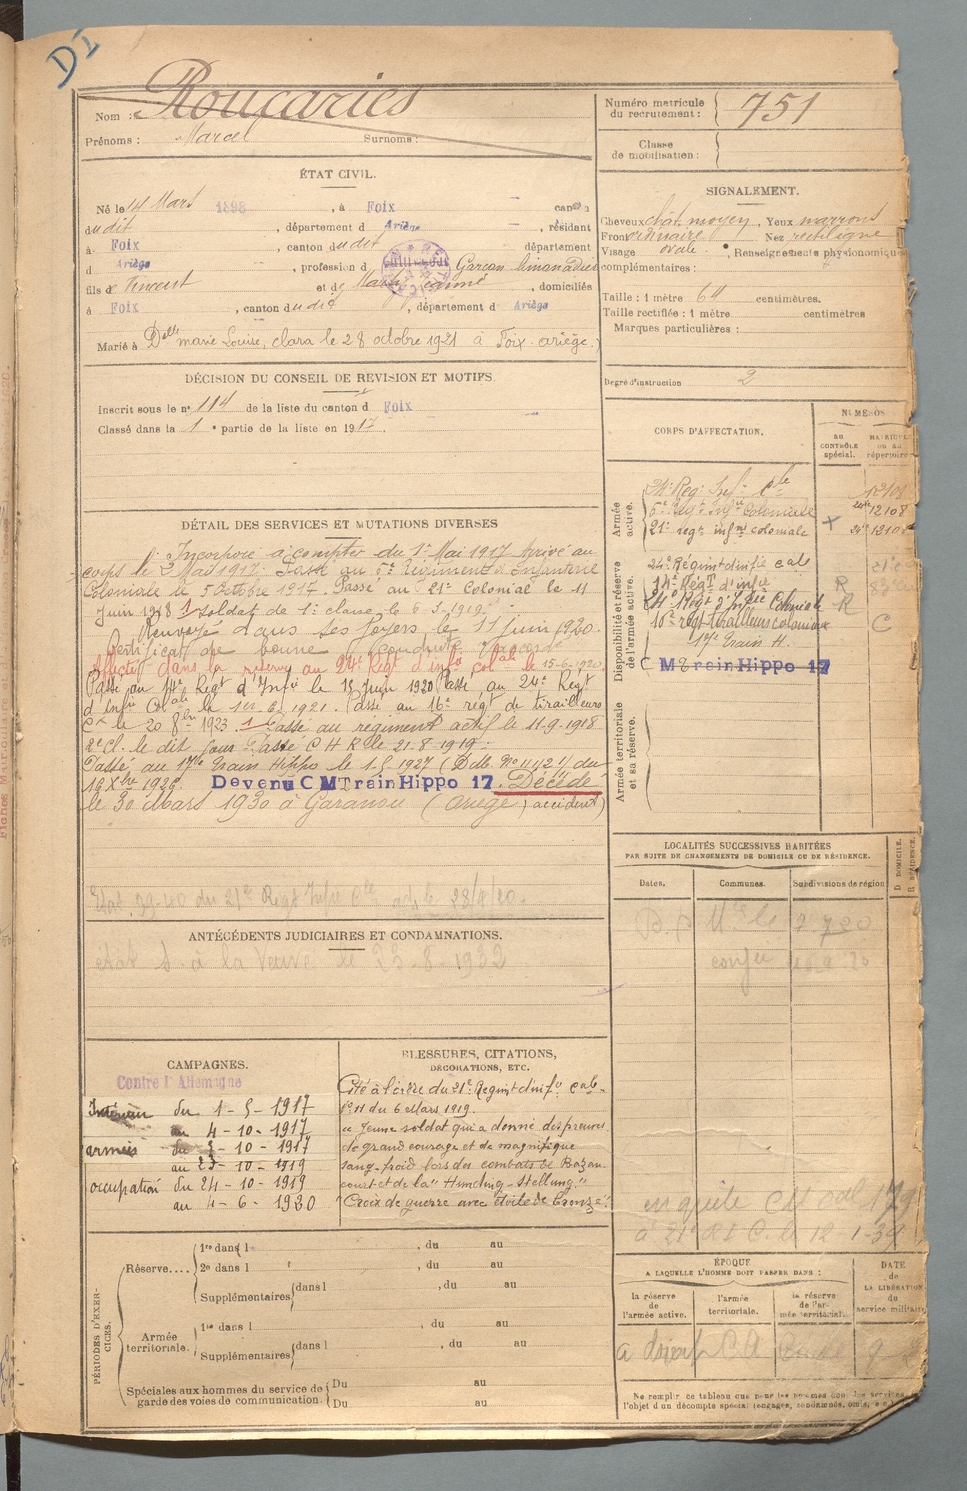 DI
Nom : Roucariès
Prénoms : Marcel Surnoms :
Numéro matricule du recrutement : 751
Classe de mobilisation :
ÉTAT CIVIL.
Né le 14 Mars 1898, à Foix canton
dudit, département d Ariège, résidant
à Foix, canton dudit département
d Ariège, profession d Garçon limonadier
fils de Vincent et de, domiciliés
à Foix, canton dudit, département d Ariège
Marié à Delle marie Louise, clara le 28 octobre 1921 à Foix ariège.
SIGNALEMENT.
Cheveux chât. moyen, Yeux marrons
Front ordinaire Nez rectiligne
Visage ovale, Renseignements physionomiques
complémentaires :
Taille : 1 mètre 64 centimètres.
Taille rectifiée : 1 mètre centimètres
Marques particulières :
Degré d'instruction 2
DÉCISION DU CONSEIL DE REVISION ET MOTIFS
Inscrit sous le n° 114 de la liste du canton d Foix
Classé dans la 1e partie de la liste en 1917.
CORPS D'AFFECTATION.
NUMÉROS
au CONTRÔLE spécial.
MATRICULE ou au répertoire
Armée active.
24e Reg. Inf. Cle
5e Régt Infie Coloniale 12108
21e regt infie coloniale 12108
Disponibilité et réserve de l'armée active.
24e Régiment d'infie cale
14e Régt d'infie R
24e Régt d'Infie Coloniale R
16e regt tirailleurs coloniaux C
17e Train H.
C M Train Hippo 17
Armée territoriale et sa réserve.
DÉTAIL DES SERVICES ET MUTATIONS DIVERSES
Incorporé à compter du 1er Mai 1917 Arrivé au
corps le 2 Mai 1917. Passé au 5e Régiment d'Infanterie
Coloniale le 5 Octobre 1917. Passé au 21e Colonial le 11
Juin 1918 Soldat de 1e classe le 6-3-1919.
Renvoyé dans ses foyers le 11 Juin 1920.
Certificat de bonne conduite accordé
Affecté dans la réserve au 24e Régt d'infie colale le 15-6-1920
Passé au 14e Régt d'Infie le 18 Juin 1920 Passé au 24e Régt
d'Infie Colale le 1er-6-1921. Passé au 16e regt de tirailleurs
cx le 20 8bre 1923. Passé au régiment actif le 11.9.1918
2e Cl. le dit jour Passé C H R le 21.8.1919.
Passé au 17e Train Hippo le 1.5.1927
Devenu C M Train Hippo 17. Décédé
le 30 Mars 1930 à Garanou (Ariège) accident)
Etat 39-40 du 21e Regt Infie Cle
LOCALITÉS SUCCESSIVES HABITÉES
PAR SUITE DE CHANGEMENTS DE DOMICILE OU DE RÉSIDENCE.
Dates. Communes. Subdivisions de région
D. DOMICILE.
R. RÉSIDENCE.
ANTÉCÉDENTS JUDICIAIRES ET CONDAMNATIONS.
état S. à la veuve le 23-8-1932
CAMPAGNES.
Contre l'Allemagne
Intérieur du 1-5-1917
au 4-10-1917
armées du 5-10-1917
au 23-10-1919
occupation du 24-10-1919
au 4-6-1920
BLESSURES, CITATIONS,
DÉCORATIONS, ETC.
Cité à l'ordre du 21e Régimt d'infie cale
N° 11 du 6 Mars 1919.
« Jeune soldat qui a donné des preuves
de grand courage et de magnifique
sang-froid lors des combats de Bazan-
court et de la "Hunding-Stellung"
Croix de guerre avec étoile de bronze.
enquête
à 21e R I C. le 12-1-39
PÉRIODES D'EXERCICES.
Réserve....
1re dans l , du au
2e dans l , du au
Supplémentaires dans l , du au
Armée territoriale.
1re dans l , du au
Supplémentaires dans l , du au
Spéciales aux hommes du service de garde des voies de communication.
Du au
Du au
ÉPOQUE
A LAQUELLE L'HOMME DOIT PASSER DANS :
la réserve de l'armée active.
l'armée territoriale.
la réserve de l'armée territoriale.
DATE de LA LIBÉRATION du service militaire
Ne remplir ce tableau que pour les hommes dont les services
l'objet d'un décompte spécial (engagés, condamnés, omis, etc.)